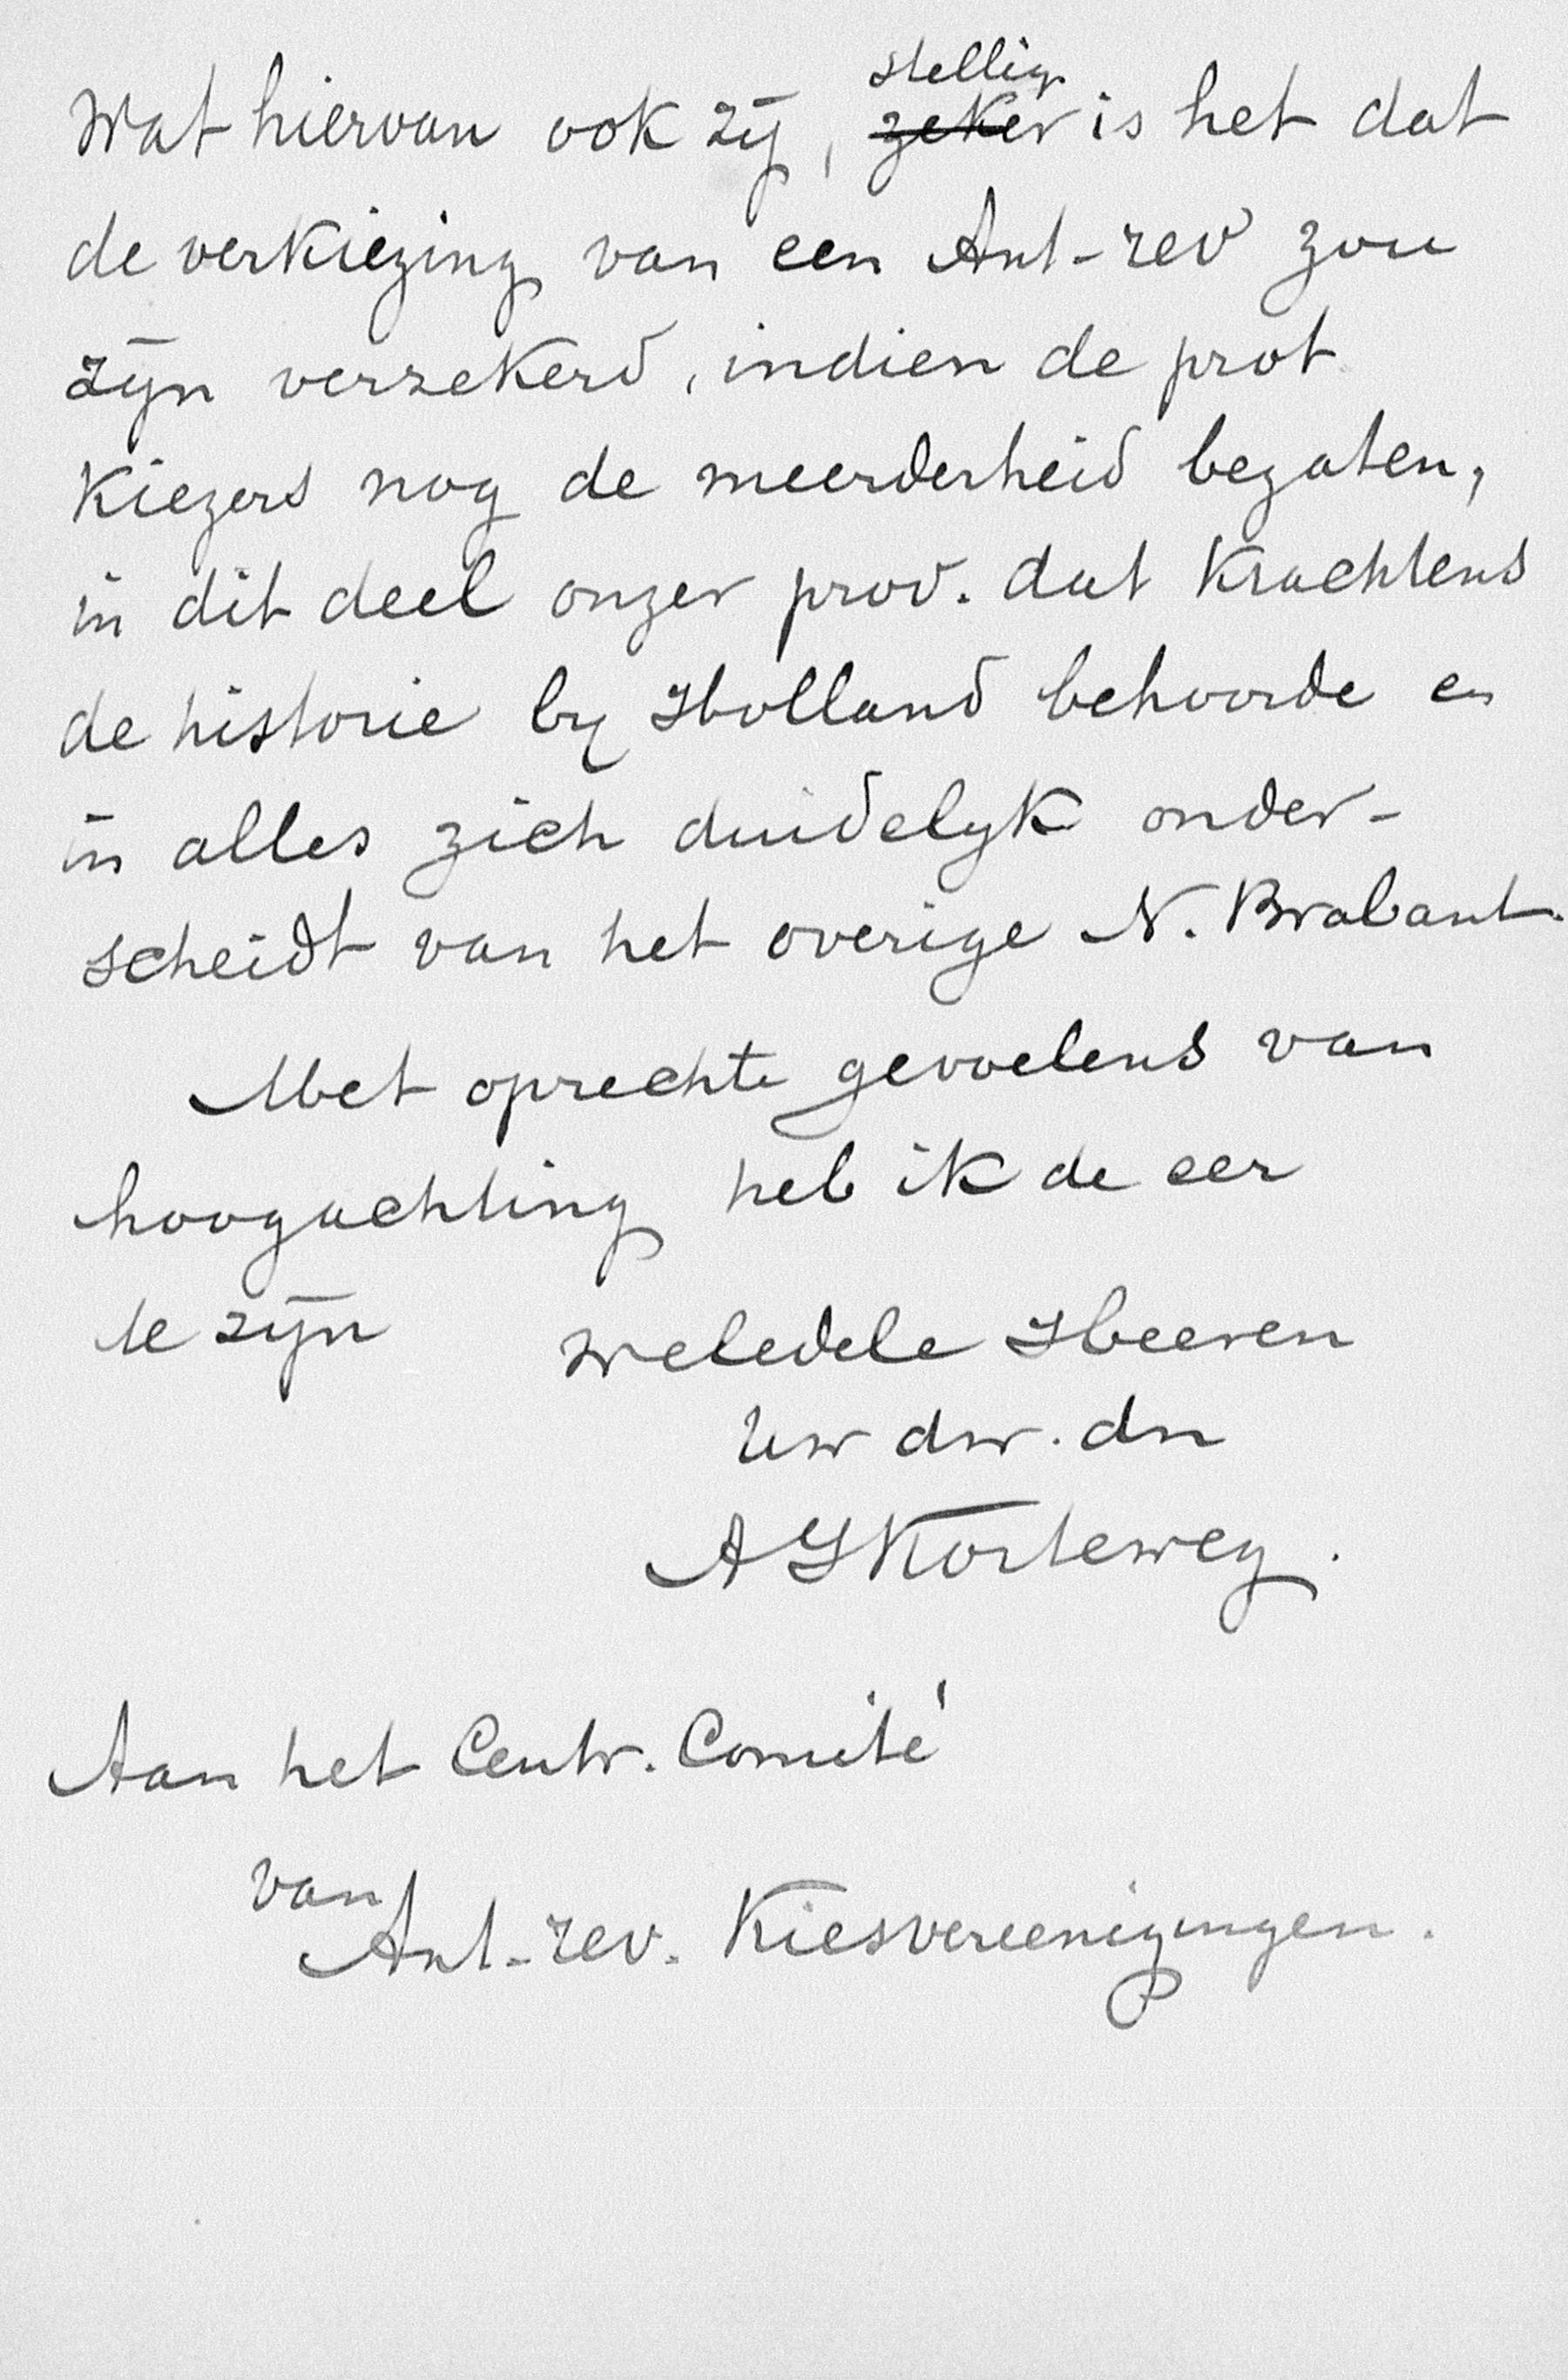 stellig
Wat hiervan ook zij, zeker is het dat
de verkiezing van een Ant-rev zou
zijn verzekerd, indien de prot
Kiezers nog de meerderheid bezaten,
in dit deel onzer prov. dat Krachtens
de historie by Holland behoorde en
in alles zich duidelyk onder-
scheidt van het overige N. Brabant.
Met oprechte gevoelens van
hoogachting heb ik de eer
te zijn Weledele Heeren
Uw dw. dn
A J Korteweg.
Aan het Centr. Comité
van
Ant-rev. Kiesvereenigingen.